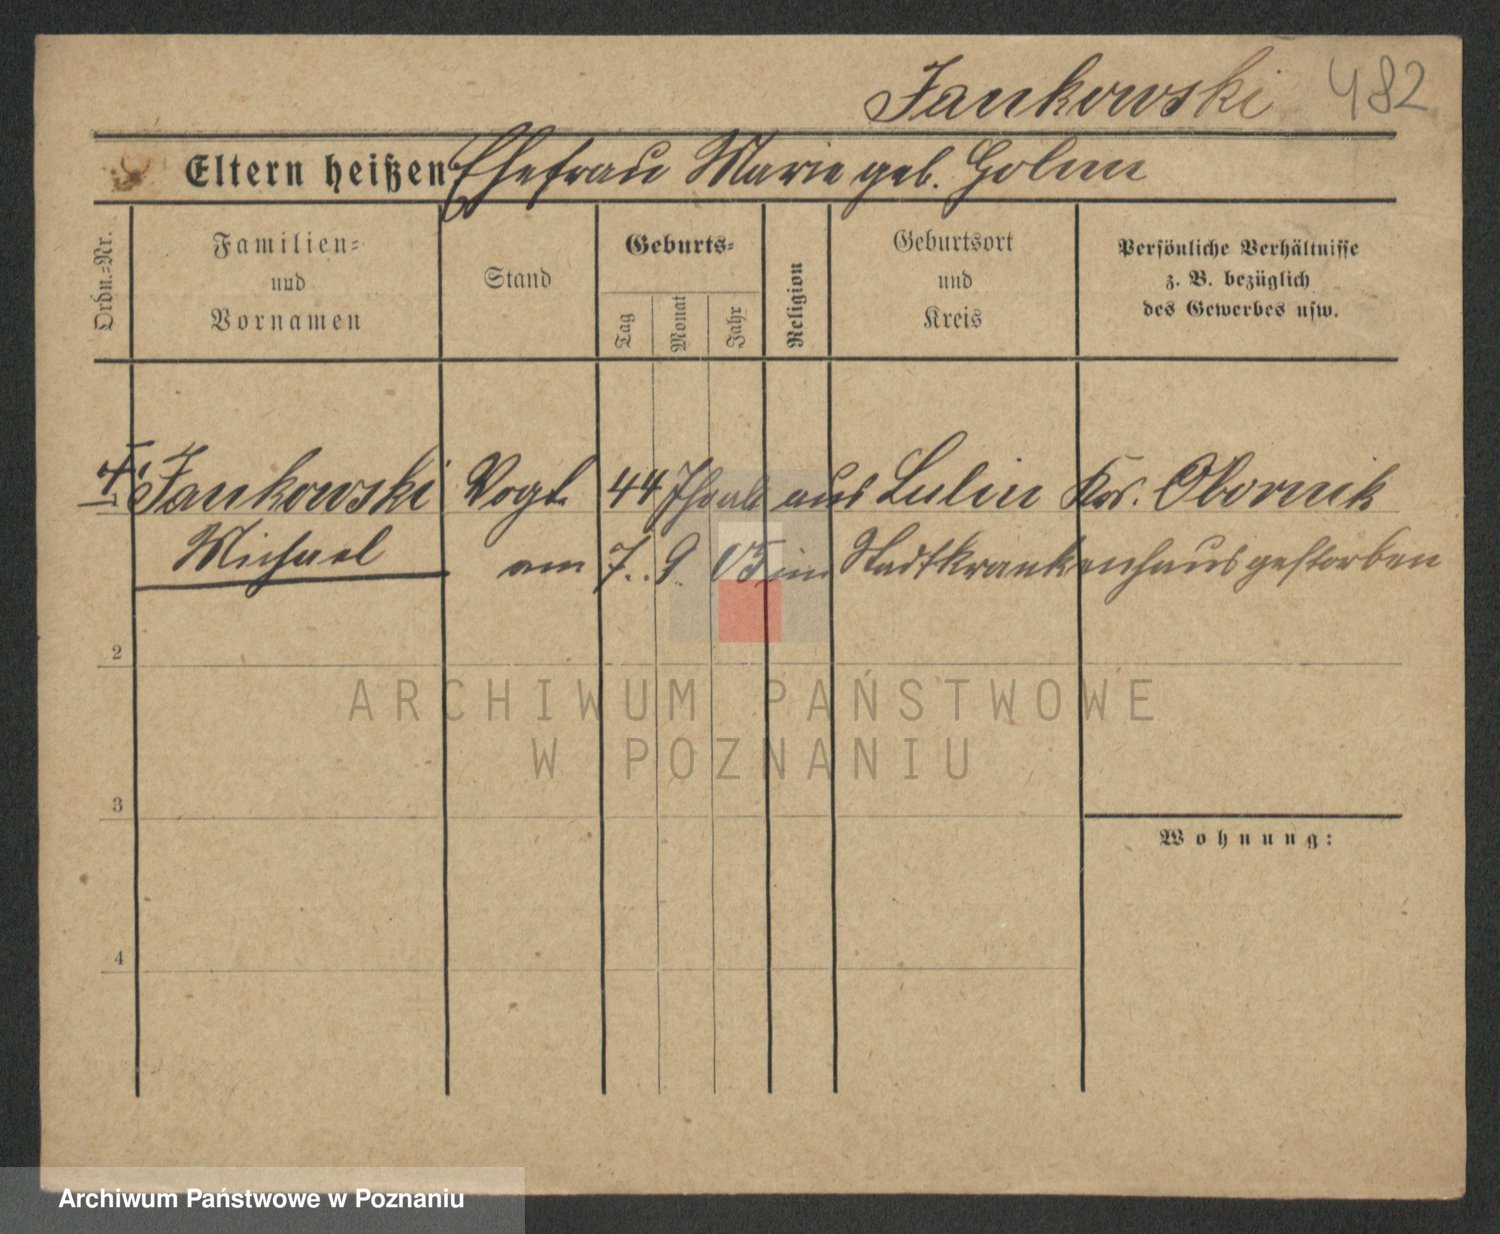 Jankowski 482
Eltern heißen Ehefrau Marie geb. Holm
Ordn.-Nr.
Familien-
und
Vornamen
Stand
Geburts-
Tag
Monat
Jahr
Religion
Geburtsort
und
Kreis
Persönliche Verhältnisse
z. B. bezüglich
des Gewerbes usw.
Jankowski Vogt 44 Jhr alt aus Lulin Krs. Obornik
Michael am 7. 9. 05 im Stadtkrankenhaus gestorben
2
ARCHIWUM PAŃSTWOWE
W POZNANIU
3
Wohnung:
4
Archiwum Państwowe w Poznaniu